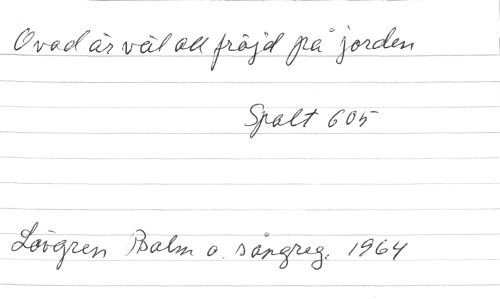 O vad är väl all fröjd på jorden
Spalt 605
Lövgren Psalm o. sångreg. 1964